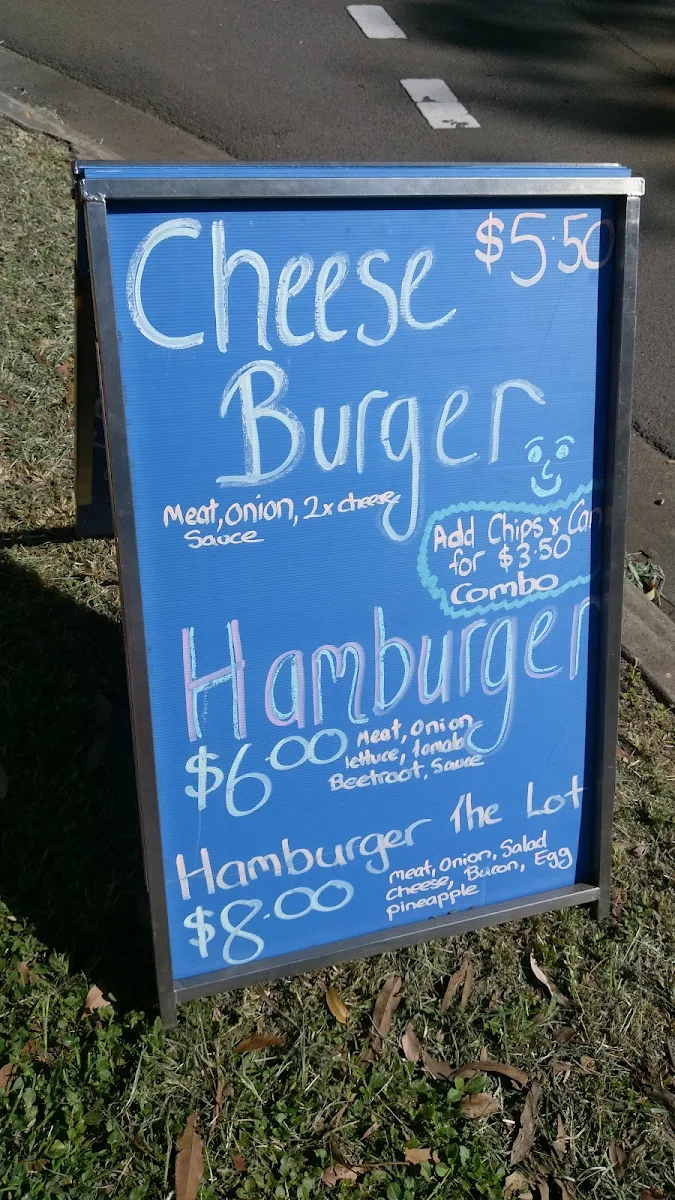 Cheese $5.50
Burger
Meat, onion, 2x cheese
Sauce
Add Chips & Can
for $3.50
Combo
Hamburger
$6.00
Meat, Onion
lettuce, tomato
Beetroot, Sauce
Hamburger The Lot
$8.00
Meat, Onion, Salad
Cheese, Bacon, Egg
pineapple